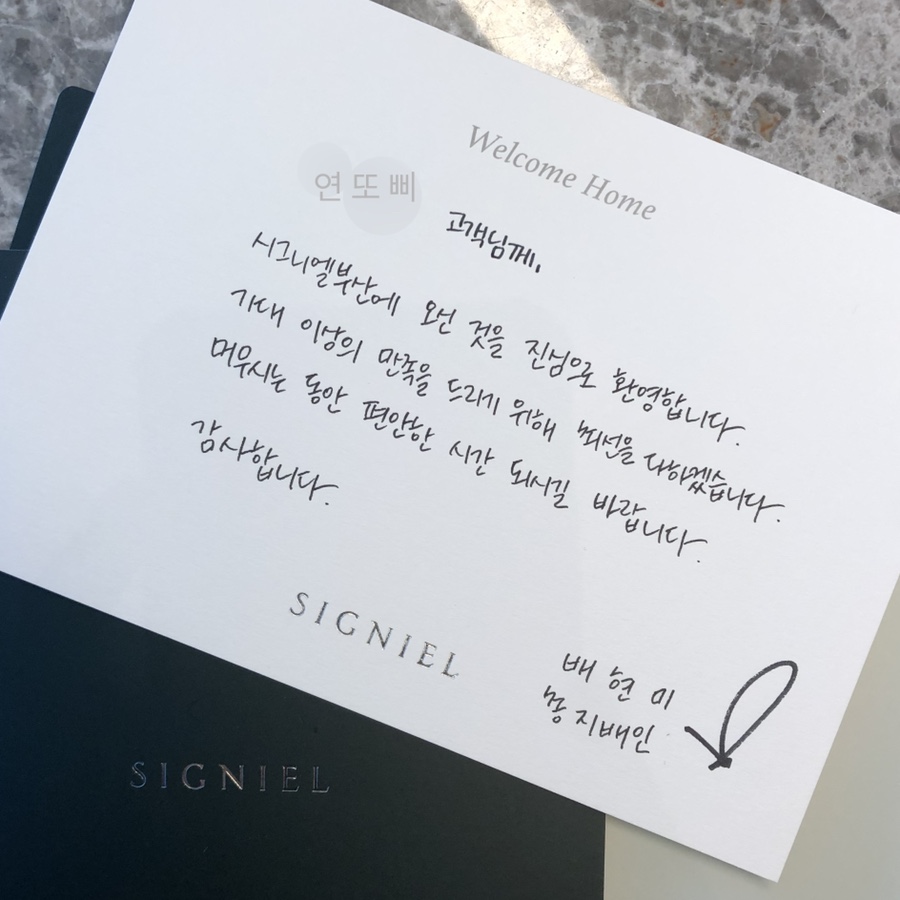 Welcome Home
연또삐
고객님께,
시그니엘부산에 오신 것을 진심으로 환영합니다.
기대 이상의 만족을 드리기 위해 최선을 다하겠습니다.
머무시는 동안 편안한 시간 되시길 바랍니다.
감사합니다.
SIGNIEL
배현미
총지배인
SIGNIEL